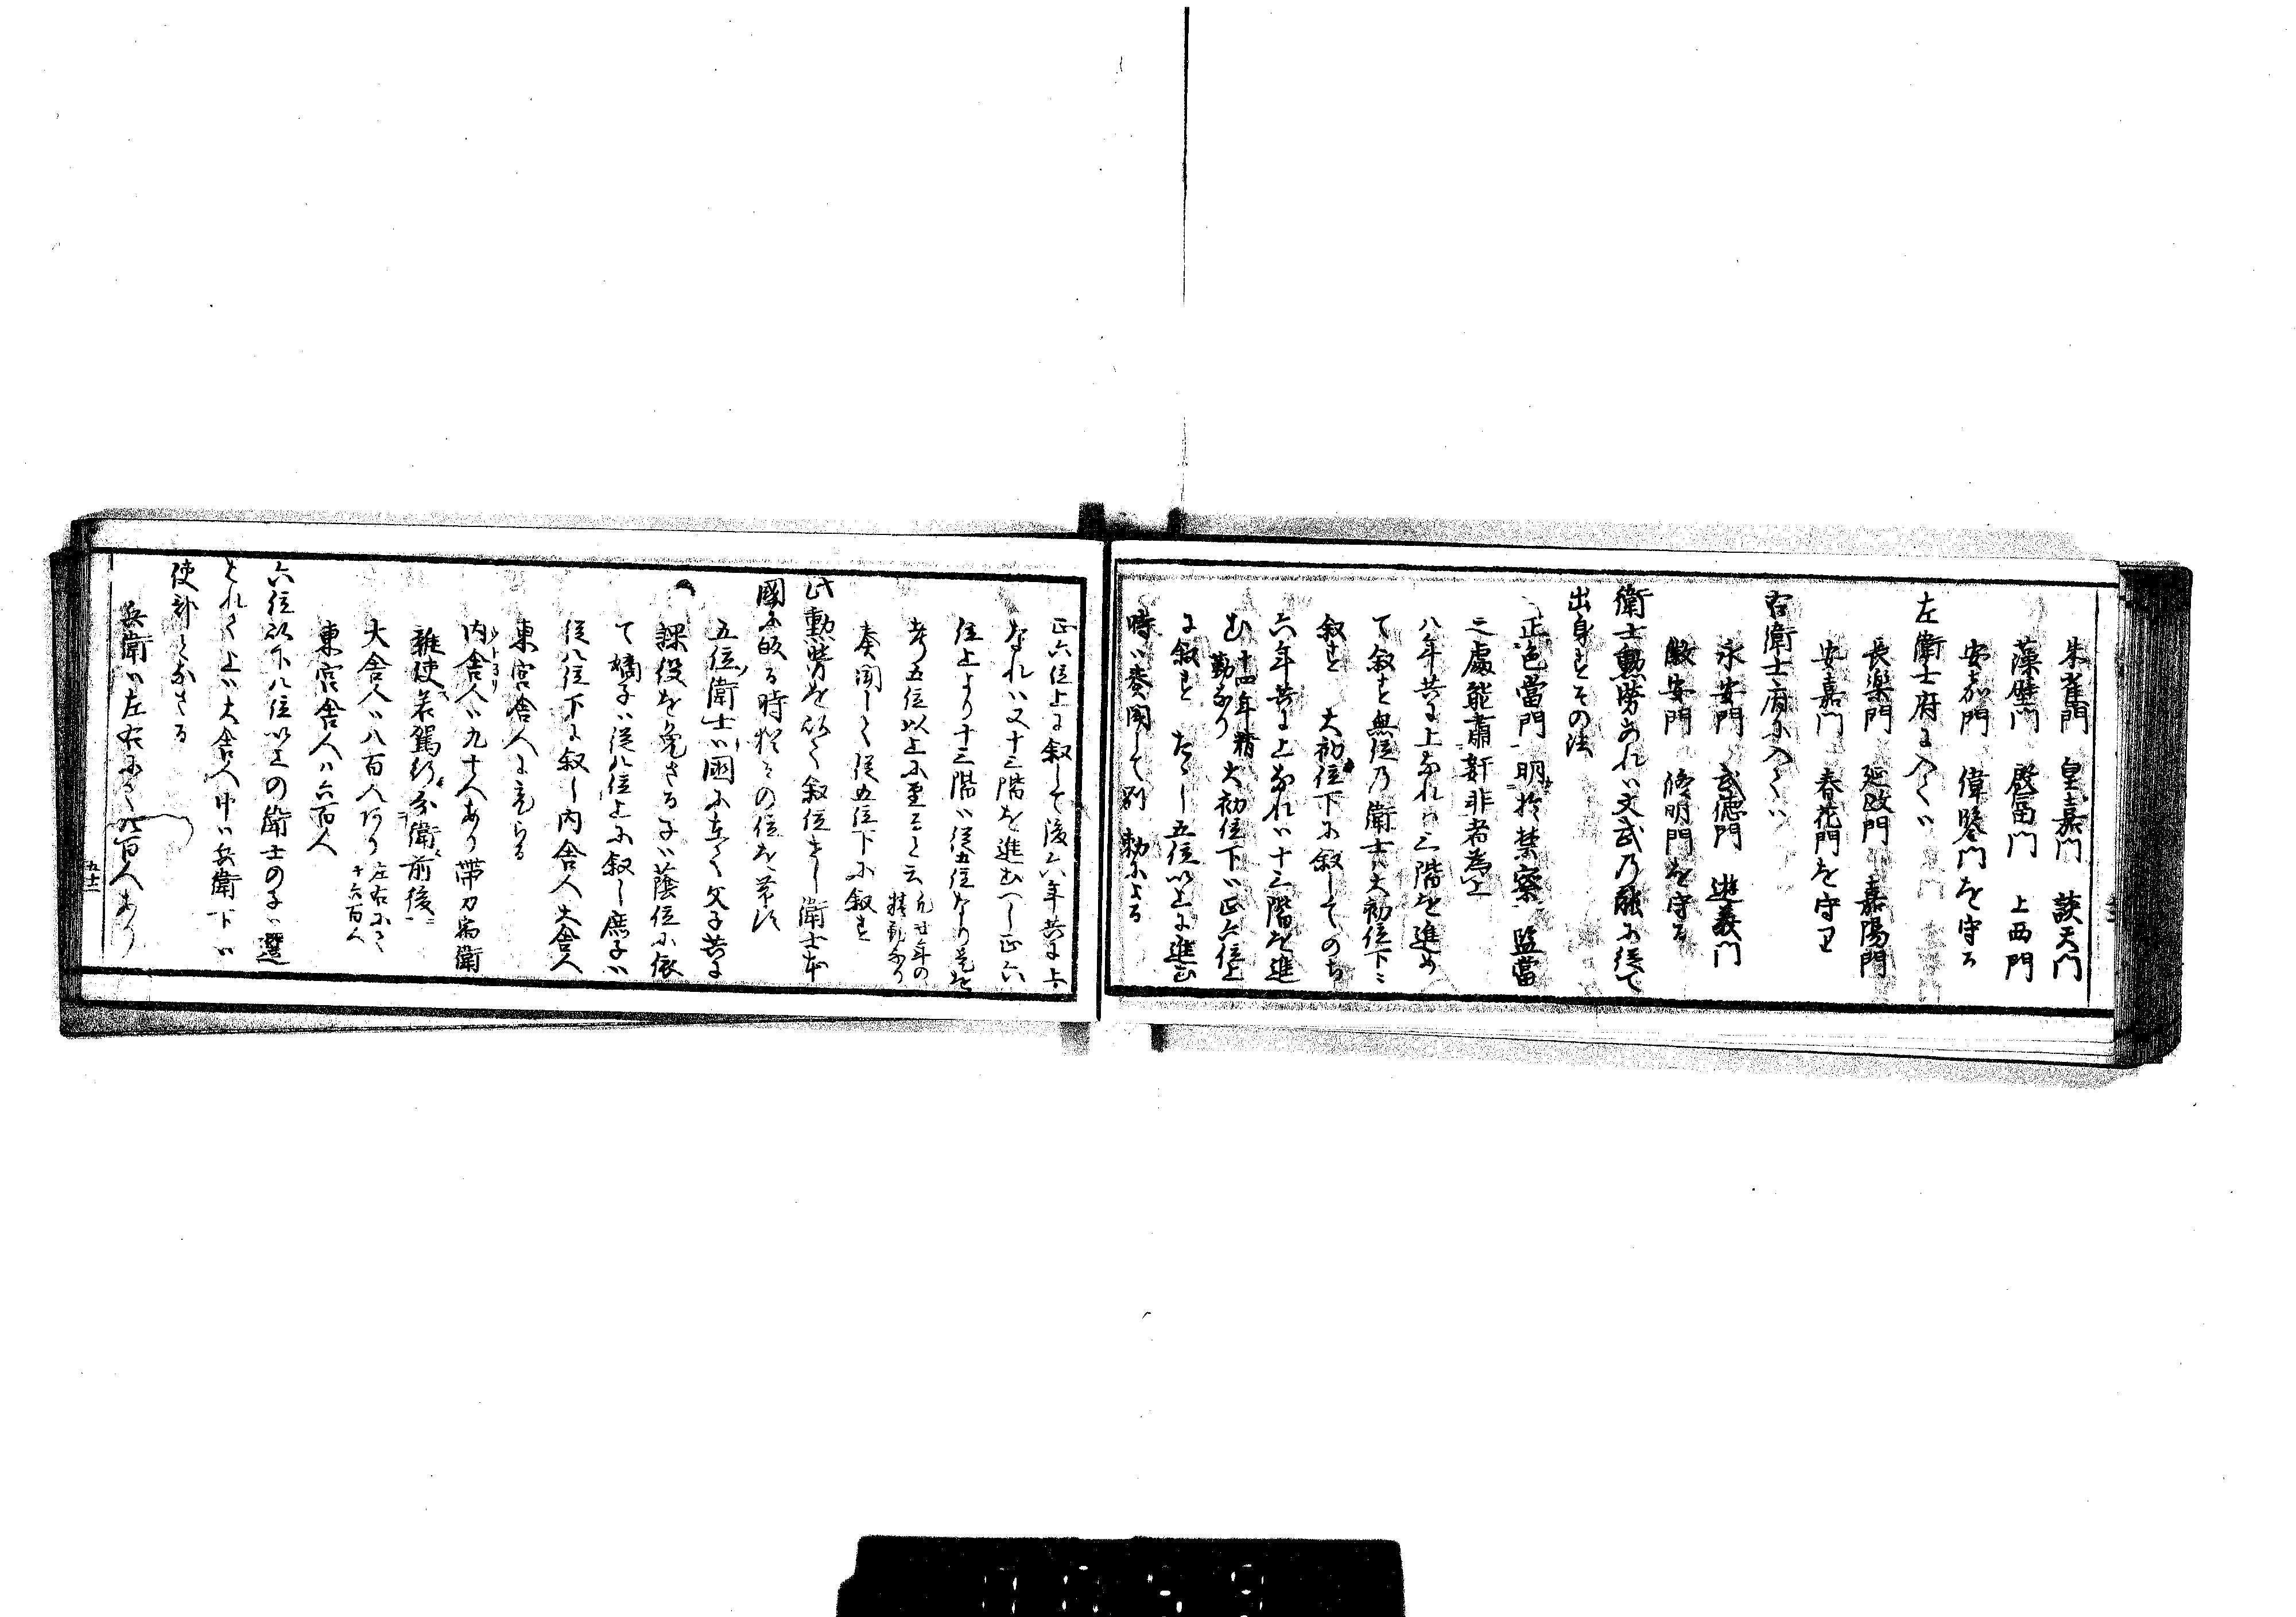 朱雀門 皇嘉門 談天門
藻壁門 殷富門 上西門
安嘉門 偉鑒門を守る
左衛士府に入てハ
長楽門 延政門 嘉陽門
安嘉門 春花門を守り
右衛士府に入てハ
永安門 武徳門 遊義門
徽安門 修明門を守る
衛士勲労あれハ文武乃職に従て
出身すその法
正色當門 明於禁察 監當
之處能肅奸非者為上
八年共に上なれは三階を進め
て叙す無位乃衛士ハ大初位下ニ
叙す 大初位下に叙してのち
六年共に上なれハ十三階を進
む 十四年精勤なり 大初位下ハ正六位上
に叙す たゝし五位以上に進む
時ハ奏聞して別 勅による
正六位上に叙して後六年共に上
なれハ又十三階を進むへし正六
位上より十三階ハ従五位なり是を
考五位以上に至ると云 凡廿年の精勤なり
奏聞して従五位下に叙す
此勲労を以て叙位せし衛士本
國に帰る時猶其の位を帯す
五位ノ衛士ハ國に在て父子共に
課役を免さる子ハ蔭位に依
て嫡子ハ従八位上に叙し庶子ハ
従八位下に叙し内舎人大舎人
東宮舎人に充らる
内舎人ハ九十人あり帶刀宿衛
雜使若駕行分衛前後
大舎人ハ八百人あり 左右にて千六百人
東宮舎人ハ六百人
六位以下八位以上の衛士の子ハ選
とれて上ハ大舎人中ハ兵衛下ハ
使部となさる
兵衛ハ左右にて八百人あり
五十二